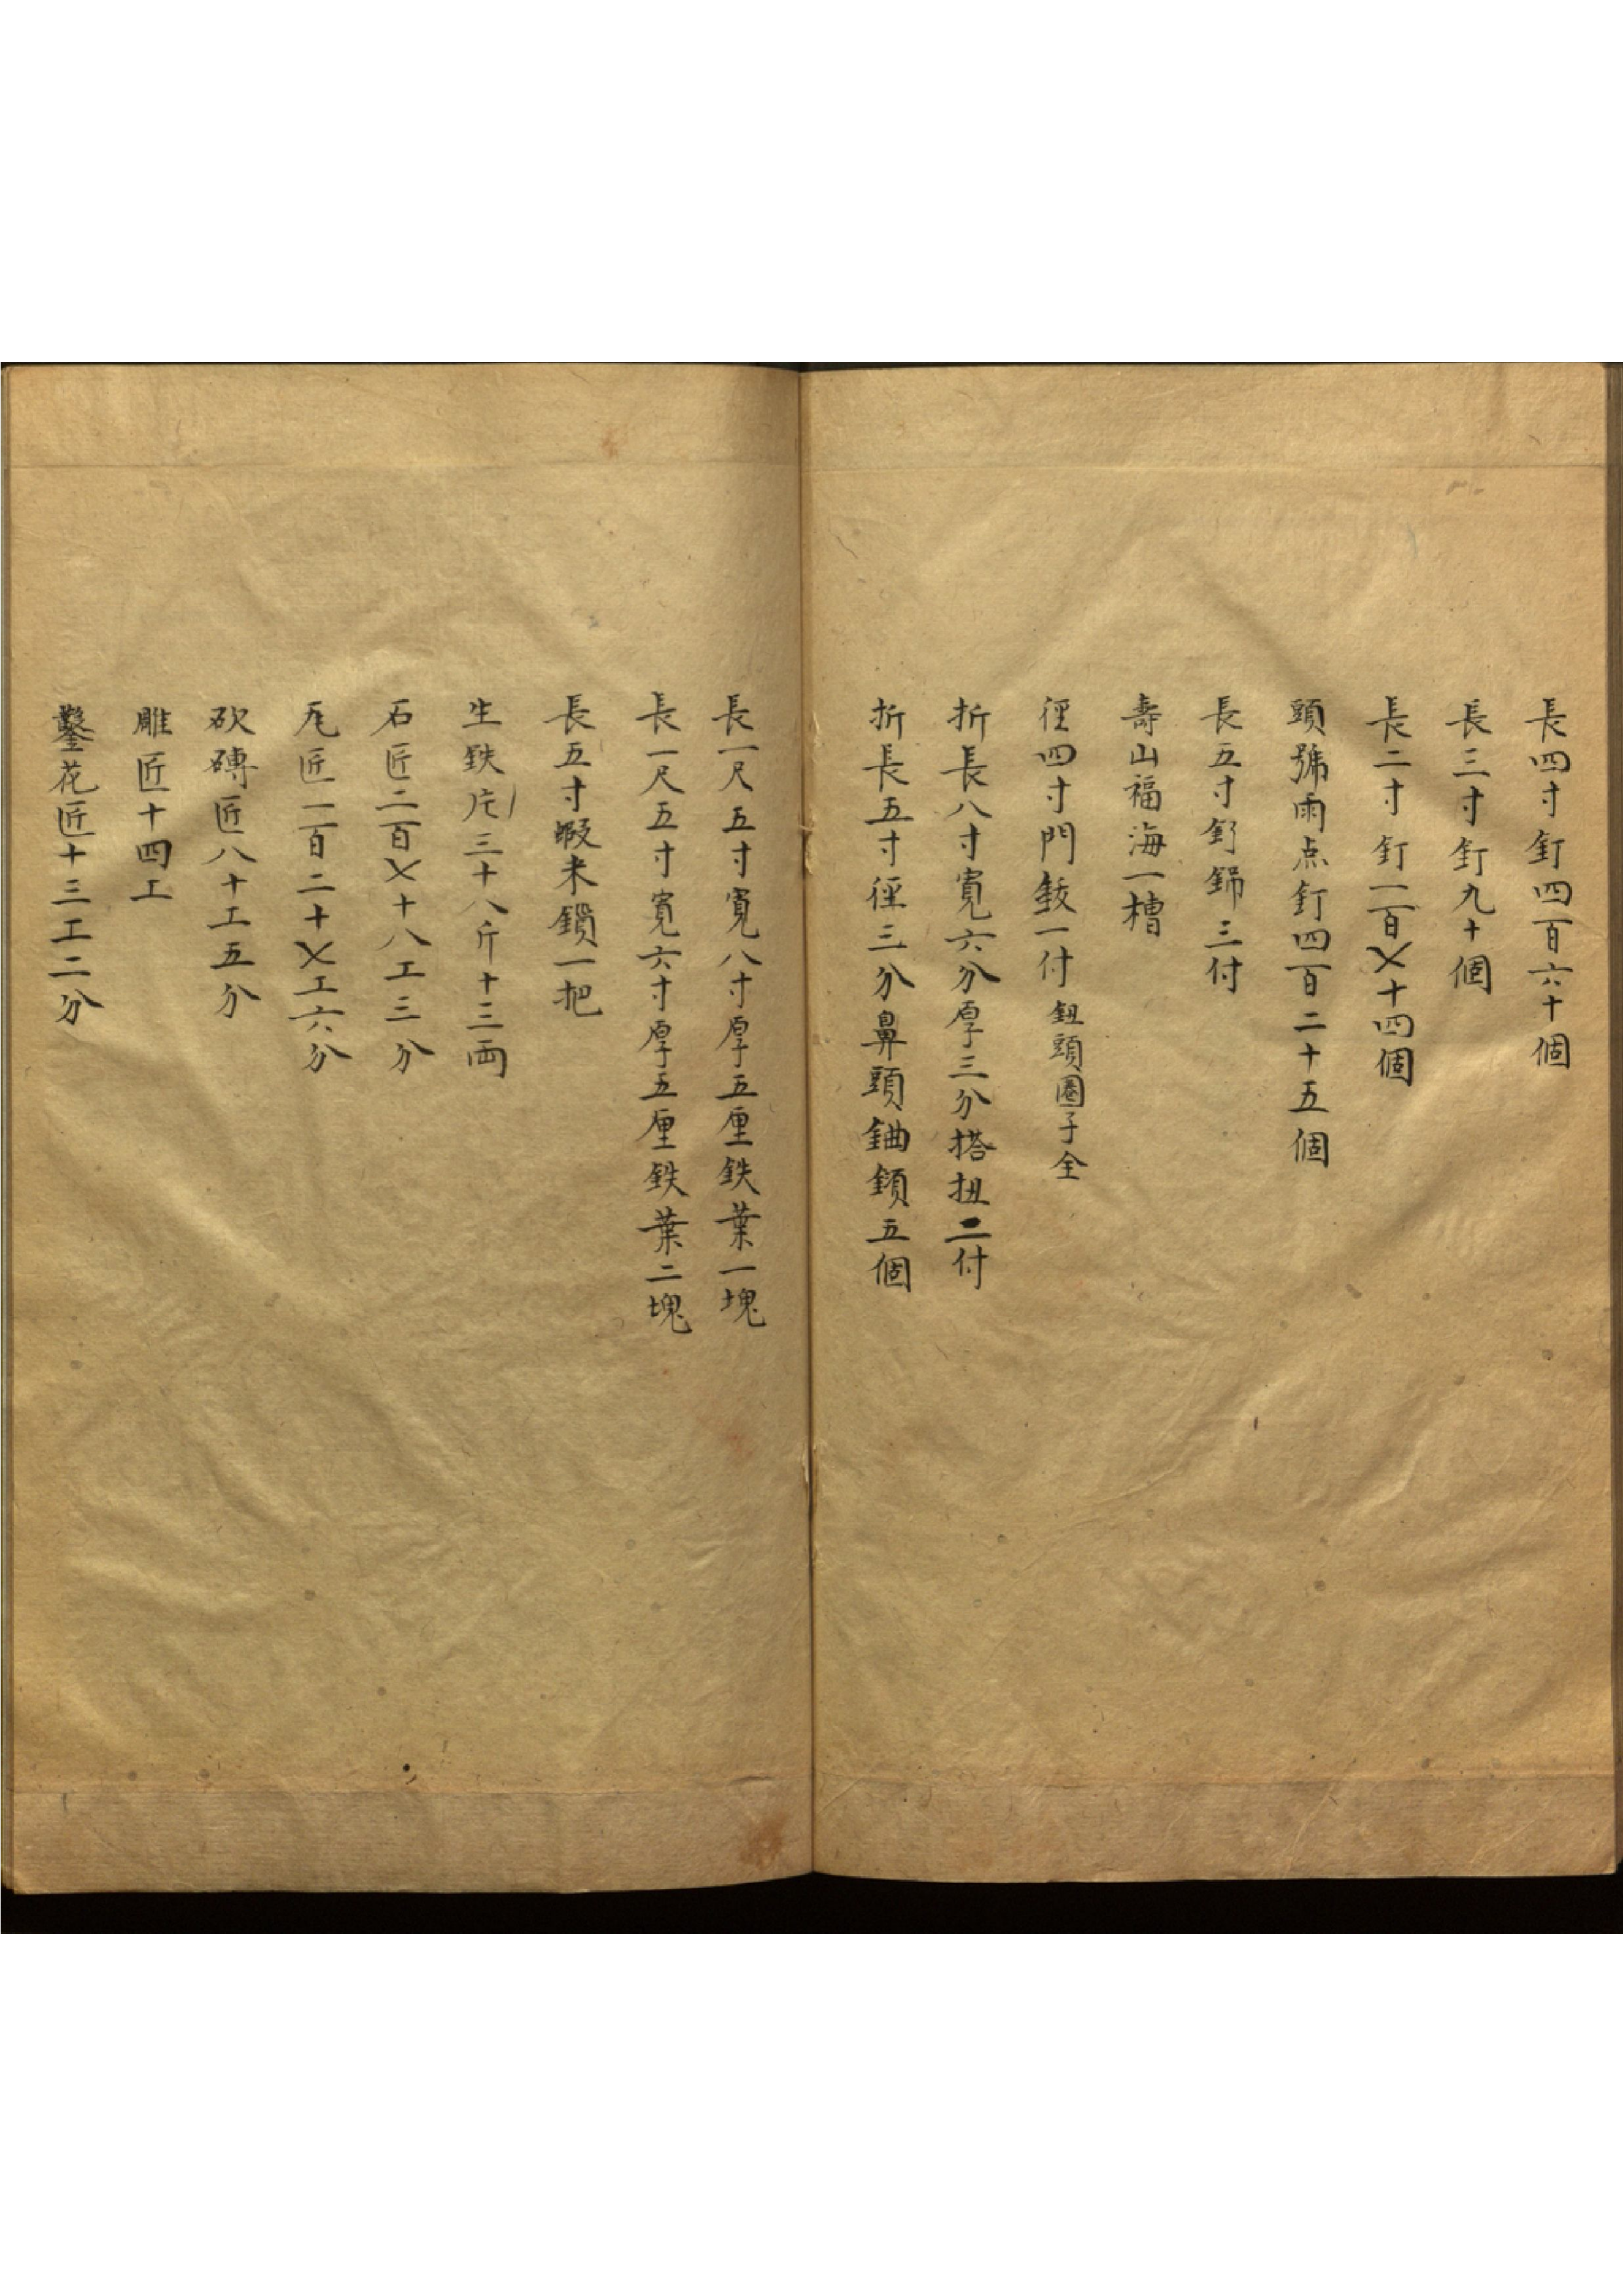 長四寸釘四百六十個
長三寸釘九十個
長二寸釘一百〤十四個
頭號雨点釘四百二十五個
長五寸釕銱三付
壽山福海一槽
徑四寸門鈸一付鈕頭圈子全
折長八寸寬六分厚三分搭扭二付
折長五寸徑三分鼻頭鈾鎖五個
長一尺五寸寬八寸厚五厘鉄葉一塊
長一尺五寸寬六寸厚五厘鉄葉二塊
長五寸蝦米鎖一把
生鉄片三十八斤十三両
石匠二百〤十八工三分
瓦匠一百二十〤工六分
砍磚匠八十工五分
雕匠十四工
鑿花匠十三工二分